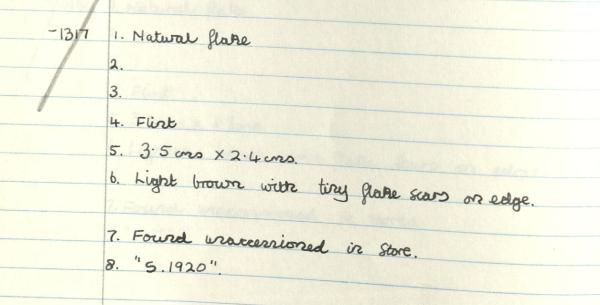 -1317 1. Natural flake
2.
3.
4. Flint
5. 3.5 cms x 2.4 cms.
6. Light brown with tiny flake scars on edge.
7. Found unaccessioned in Store.
8. "S.1920".